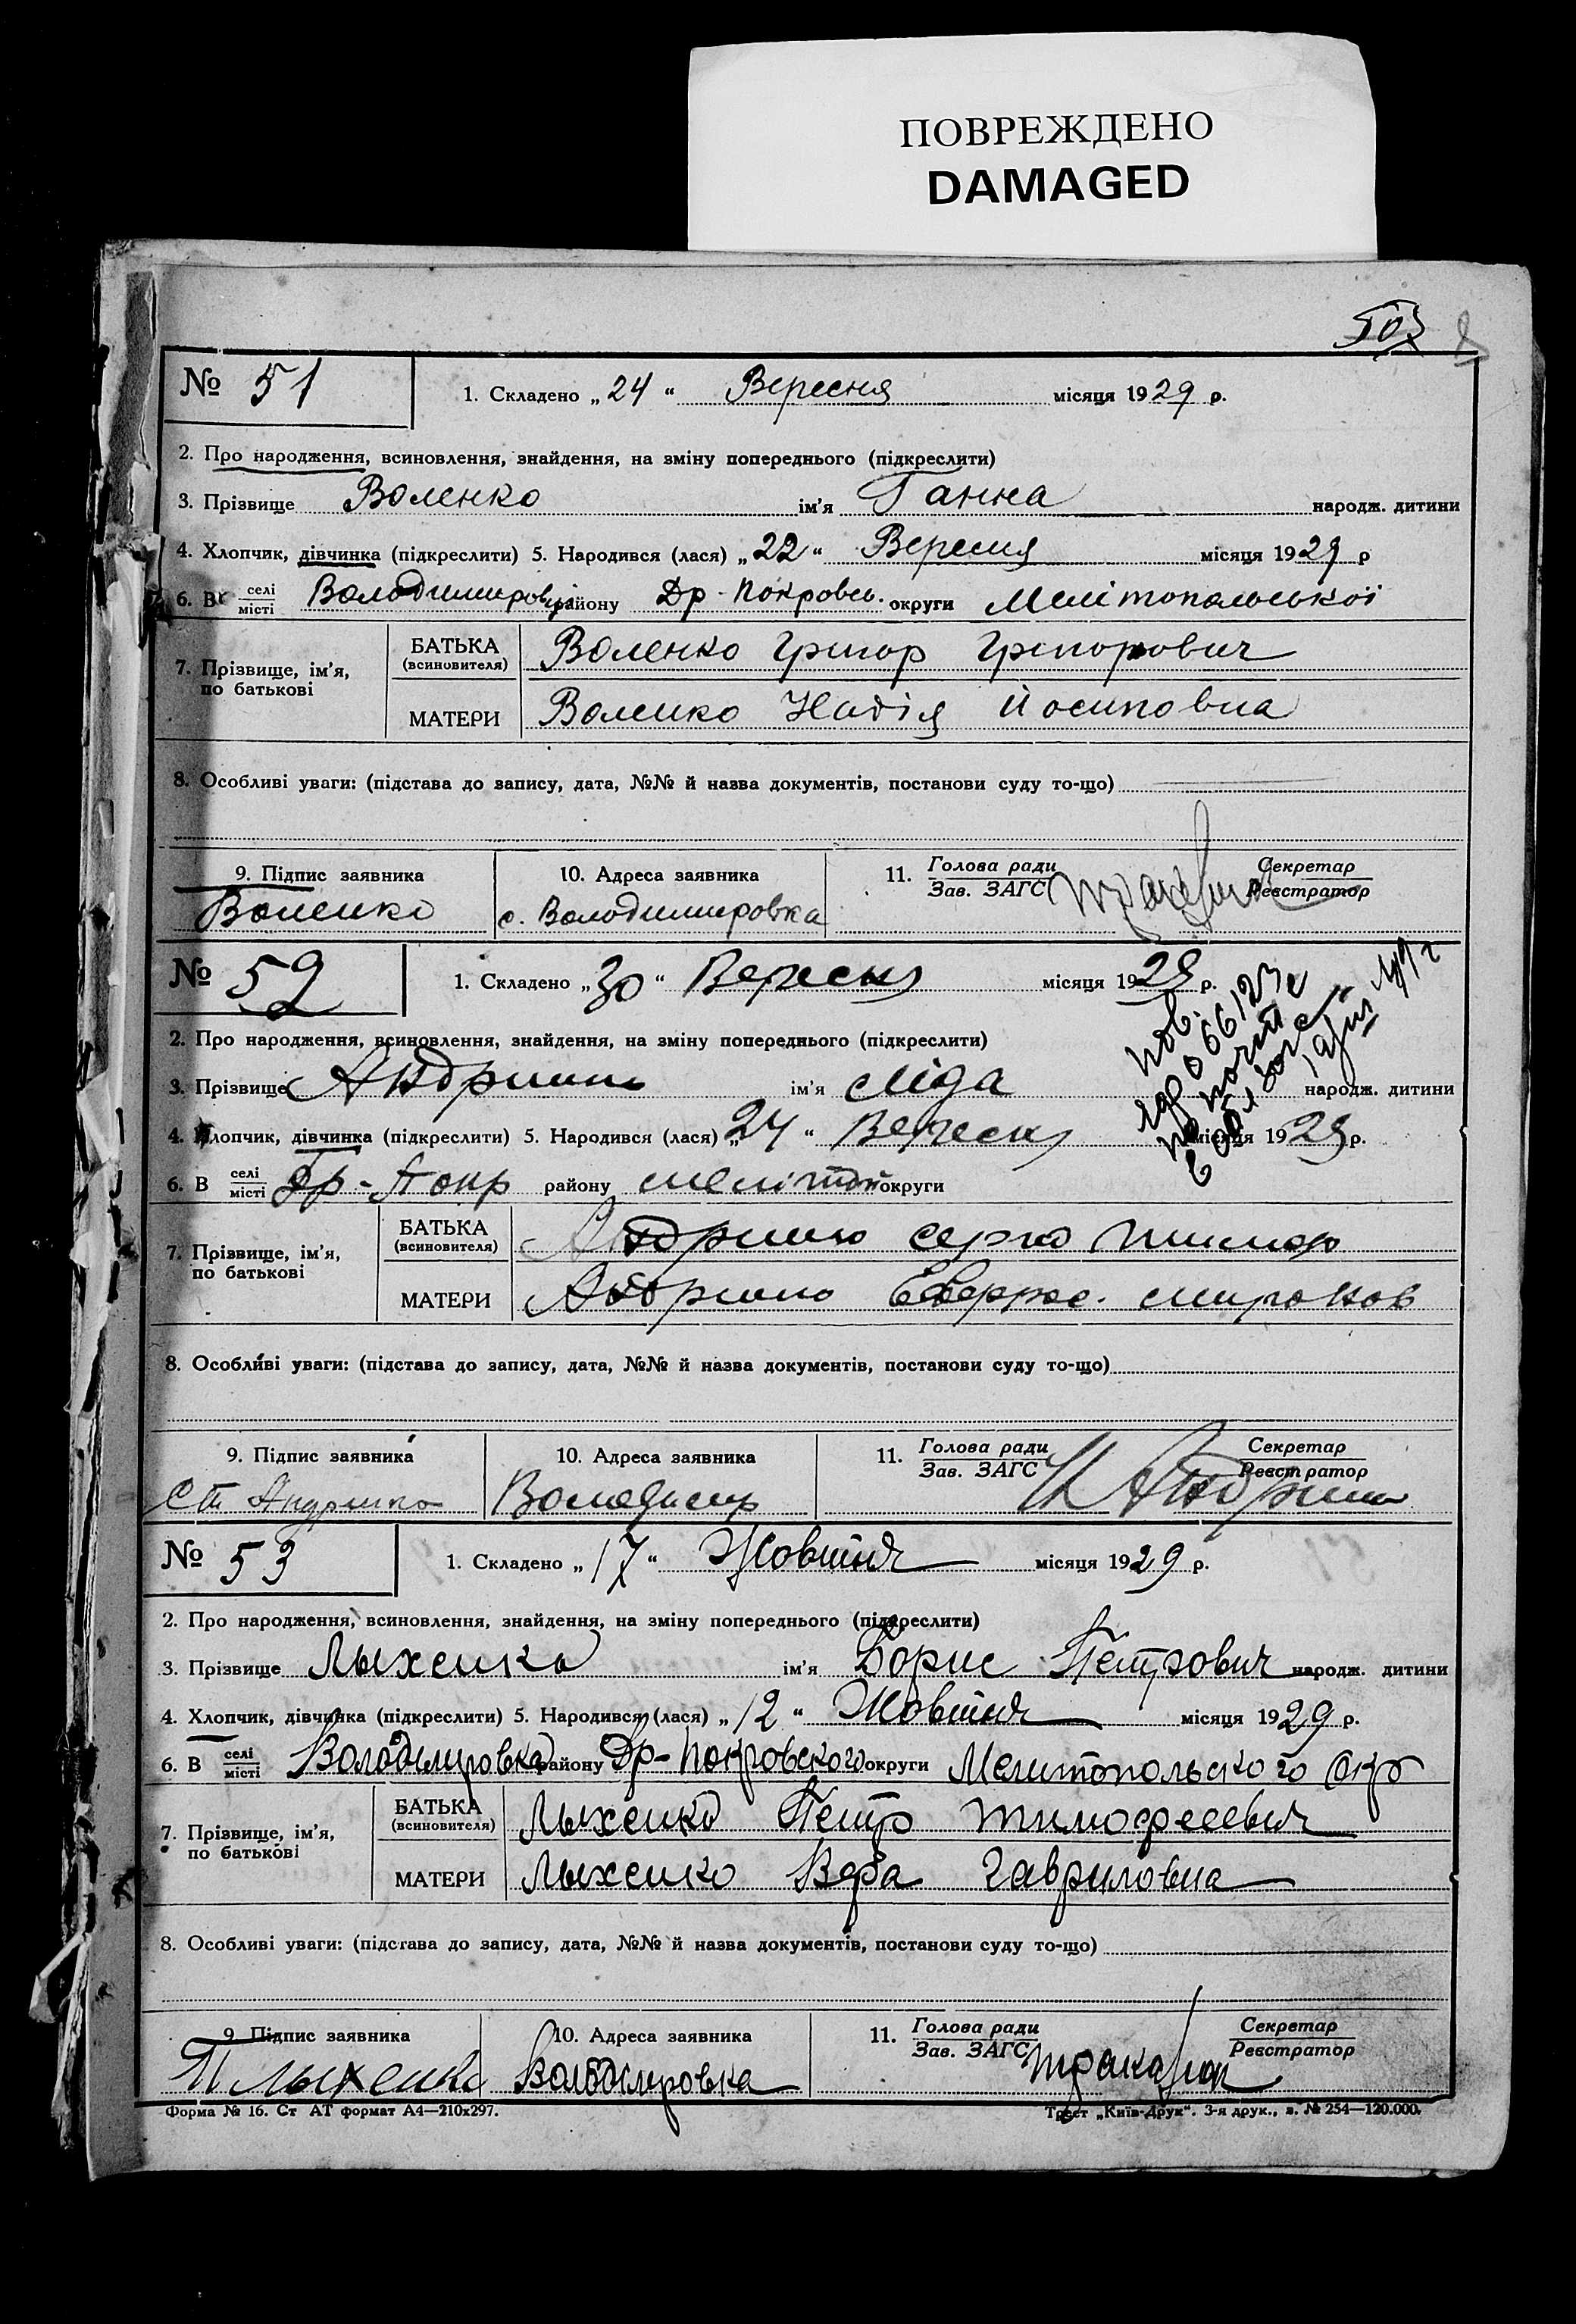 ПОВРЕЖДЕНО
DAMAGED
№ 51
1. Складено „ 24 “ Вересня місяця 1929 р.
2. Про народження, всиновлення, знайдення, на зміну попереднього (підкреслити)
3. Прізвище Воленко ім’я Ганна народж. дитини
4. Хлопчик, дівчинка (підкреслити) 5. Народився (лася) „ 22 “ Вересня місяця 1929 р
6. В селі місті Володимировці району Др-Покровсь. округи Мелітопольської
7. Прізвище, ім’я, по батькові
БАТЬКА (всиновителя) Воленко Григор Григорович
МАТЕРИ Воленко Надія Йосиповна
8. Особливі уваги: (підстава до запису, дата, №№ й назва документів, постанови суду то-що)
9. Підпис заявника 10. Адреса заявника 11. Голова ради Зав. ЗАГС Секретар Реєстратор
Воленко с. Володимировка
№ 52
1. Складено „ 30 “ Вересня місяця 1929 р.
2. Про народження, всиновлення, знайдення, на зміну попереднього (підкреслити)
3. Прізвище ім’я Ліда народж. дитини
4. Хлопчик, дівчинка (підкреслити) 5. Народився (лася) „ 24 “ Вересня місяця 1929 р.
6. В селі місті Др-Покр району Мелітоп округи
7. Прізвище, ім’я, по батькові
БАТЬКА (всиновителя)
МАТЕРИ
8. Особливі уваги: (підстава до запису, дата, №№ й назва документів, постанови суду то-що)
9. Підпис заявника 10. Адреса заявника 11. Голова ради Зав. ЗАГС Секретар Реєстратор
Володимир
№ 53
1. Складено „ 17 “ Жовтня місяця 1929 р.
2. Про народження, всиновлення, знайдення, на зміну попереднього (підкреслити)
3. Прізвище Лыхенко ім’я Борис Петрович народж. дитини
4. Хлопчик, дівчинка (підкреслити) 5. Народився (лася) „ 12 “ Жовтня місяця 1929 р.
6. В селі місті Володимировка району Др-Покровского округи Мелитопольского Окр
7. Прізвище, ім’я, по батькові
БАТЬКА (всиновителя) Лыхенко Петр Тимофеевич
МАТЕРИ Лыхенко Вера Гавриловна
8. Особливі уваги: (підстава до запису, дата, №№ й назва документів, постанови суду то-що)
9. Підпис заявника 10. Адреса заявника 11. Голова ради Зав. ЗАГС Секретар Реєстратор
П Лыхенко Володимировка
Форма № 16. Ст АТ формат А4—210х297. Трест „Київ-Друк“. 3-я друк., з. № 254—120.000.